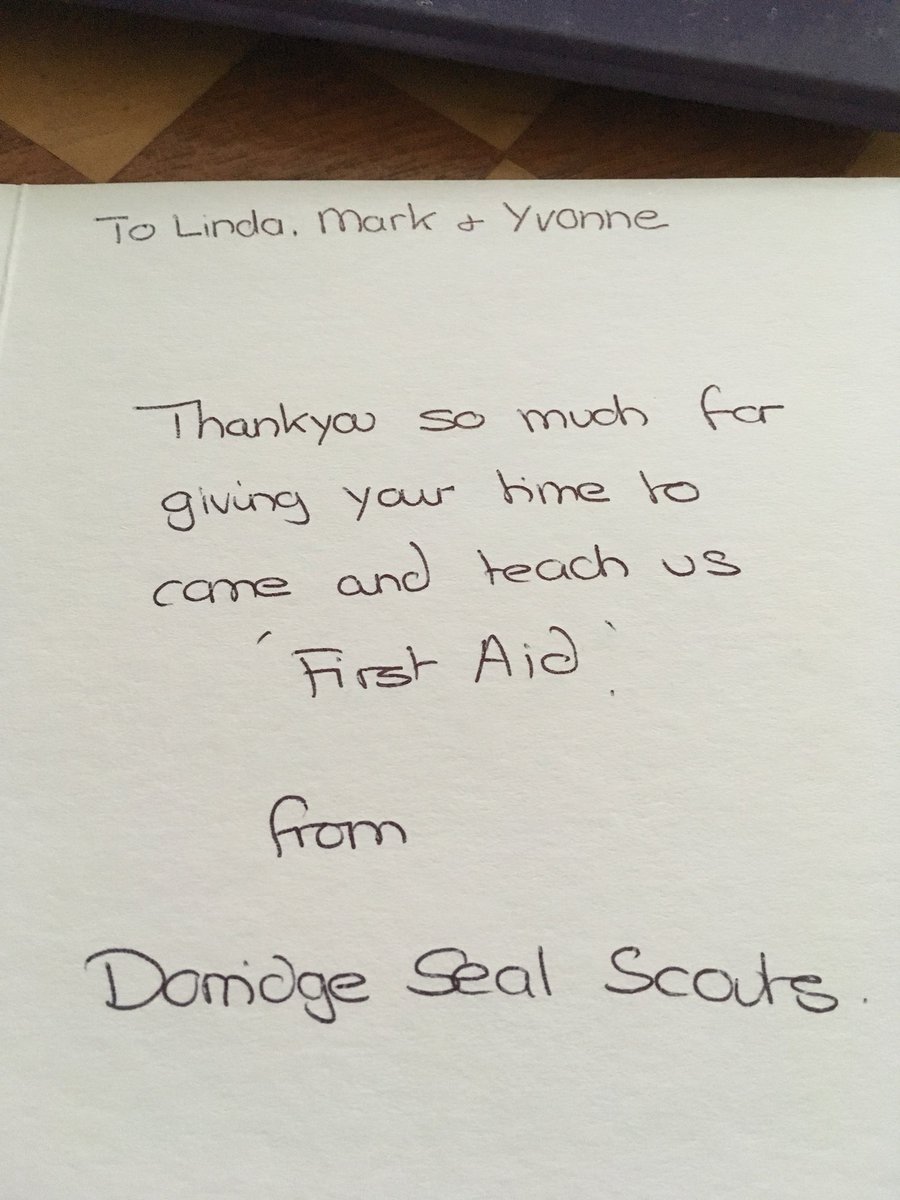 To Linda, Mark + Yvonne
Thankyou so much for
giving your time to
come and teach us
'First Aid'.
from
Dorridge Seal Scouts.